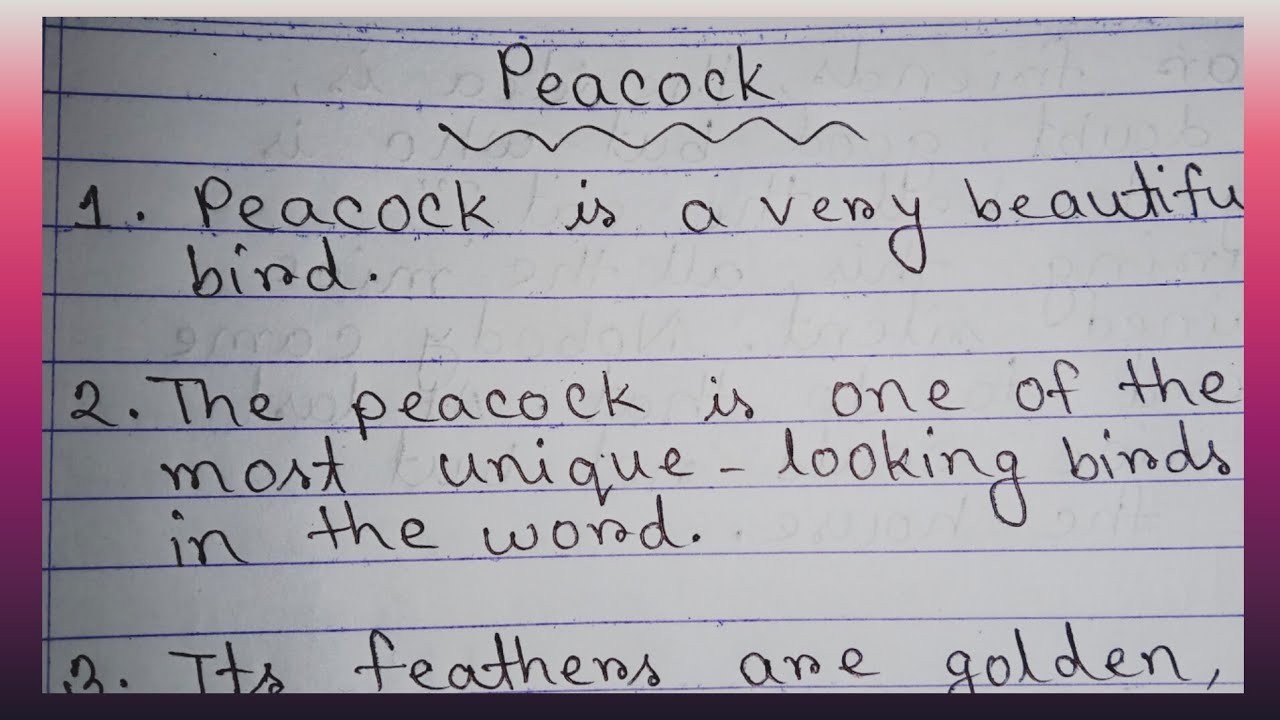 Peacock
1. Peacock is a very beautifu
bird.
2. The peacock is one of the
most unique - looking birds
in the word.
3. Its feathers are golden,